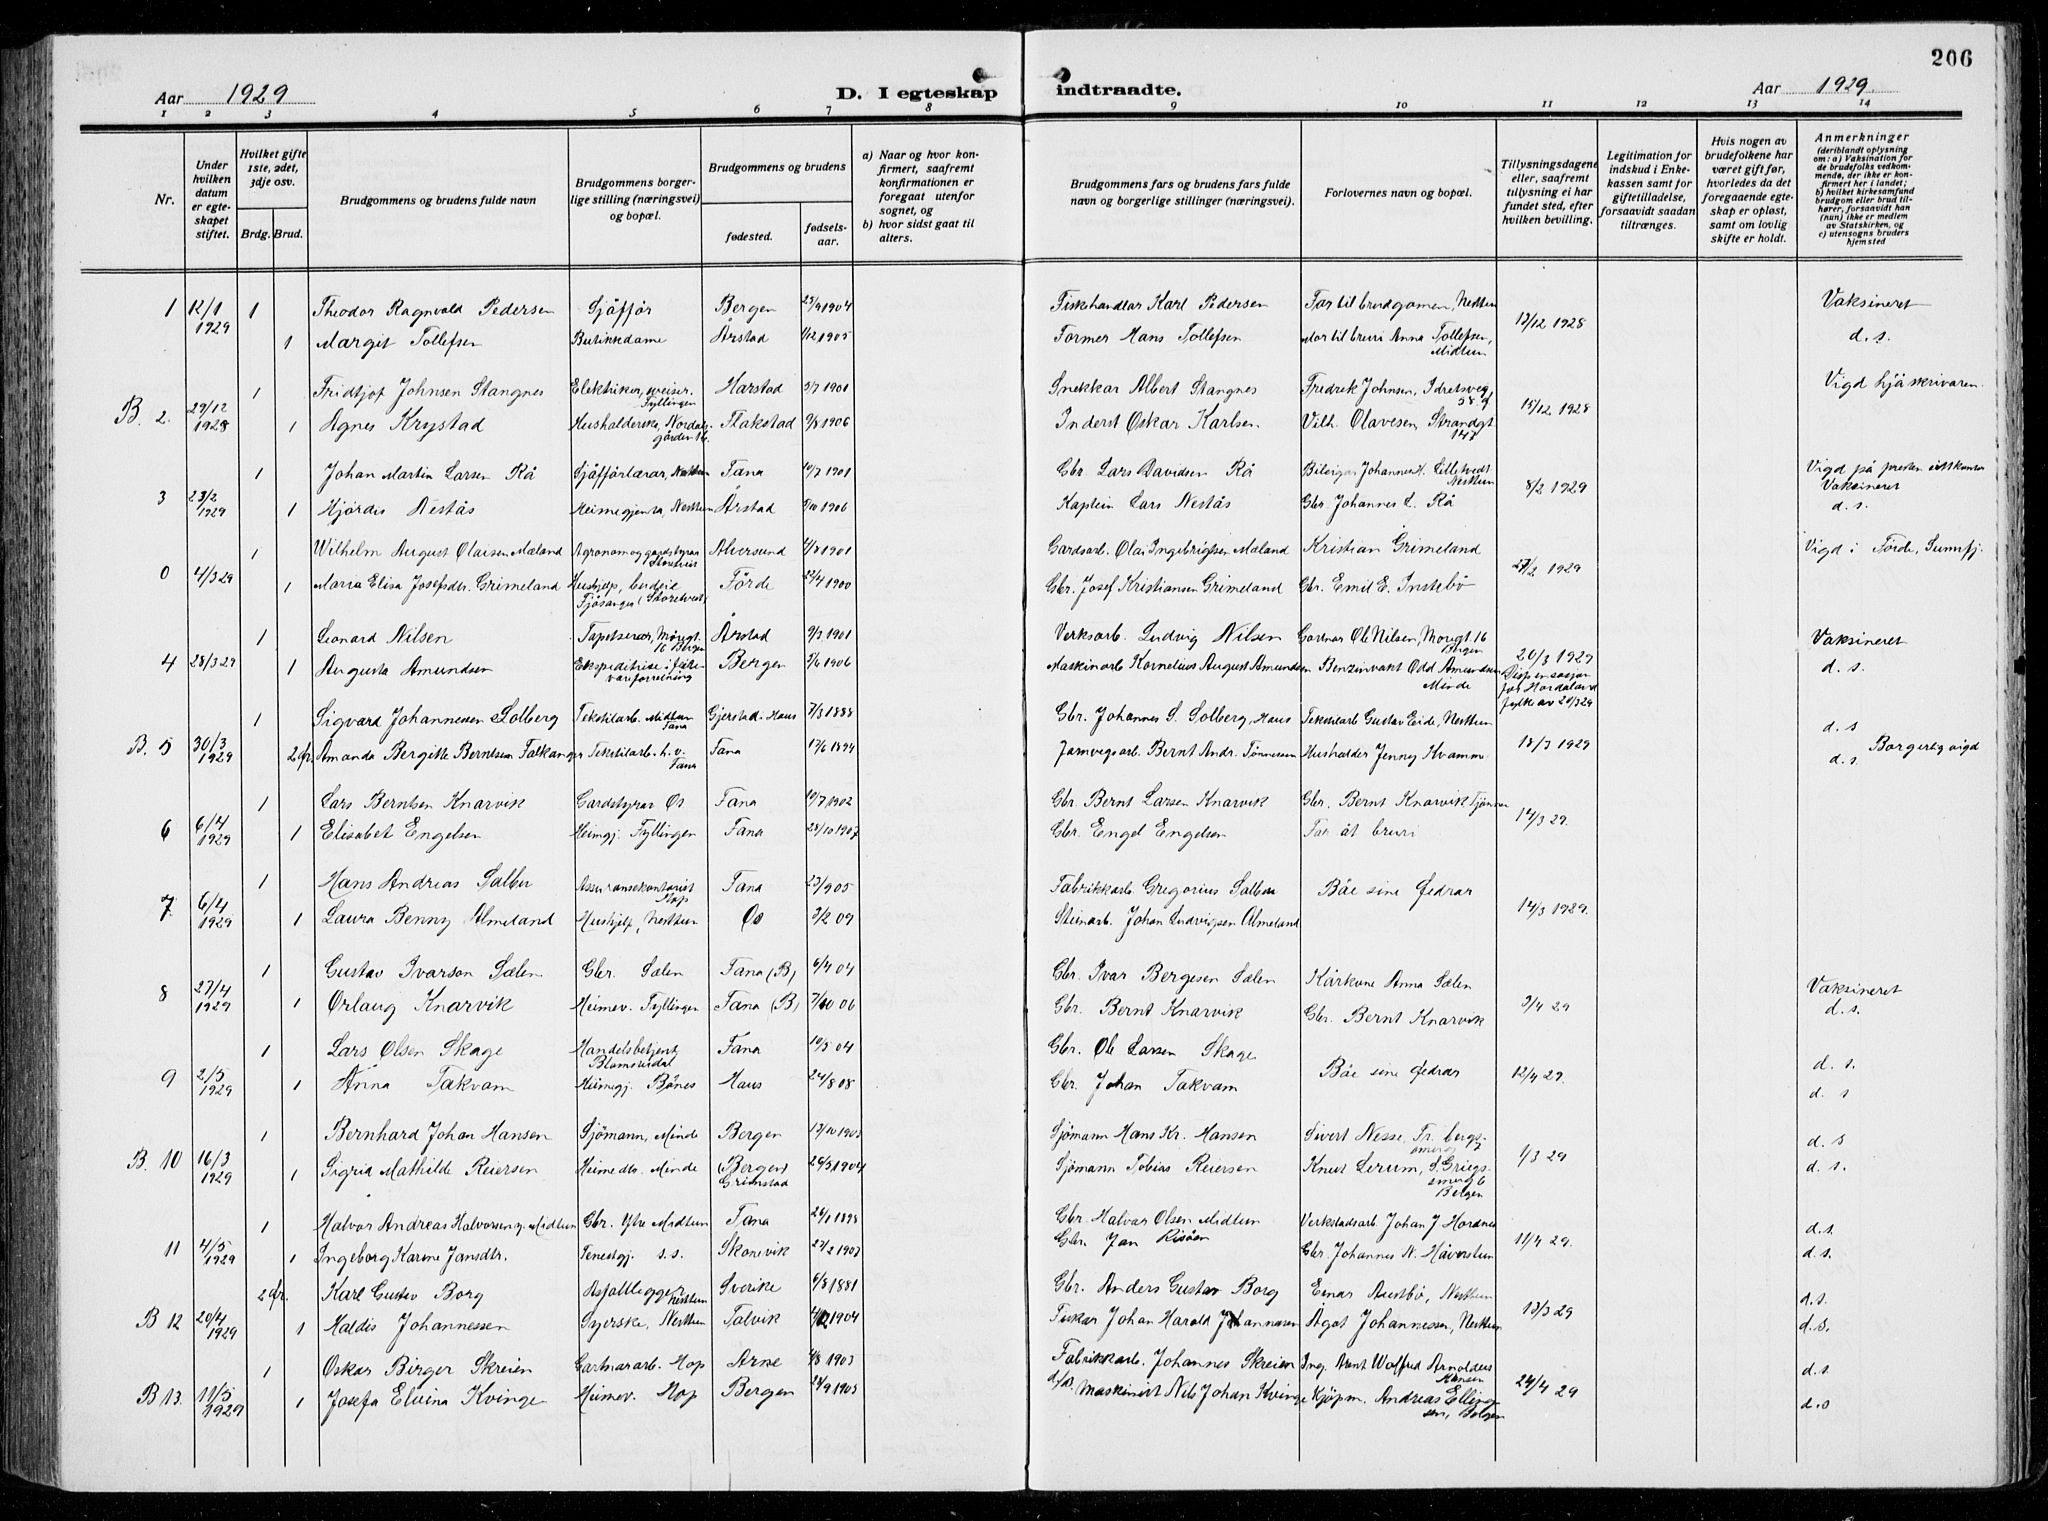 206
Aar 1929 D. I egteskap indtraadte. Aar 1929
1 2 3 4 5 6 7 8 9 10 11 12 13 14
Nr.
Under hvilken datum er egteskapet stiftet.
Hvilket gifte 1ste, 2det, 3dje osv.
Brdg. Brud.
Brudgommens og brudens fulde navn
Brudgommens borgerlige stilling (næringsvei) og bopæl.
Brudgommens og brudens
fødested.
fødselsaar.
a) Naar og hvor konfirmert, saafremt konfirmationen er foregaat utenfor sognet, og
b) hvor sidst gaat til alters.
Brudgommens fars og brudens fars fulde navn og borgerlige stillinger (næringsvei).
Forlovernes navn og bopæl.
Tillysningsdagene eller, saafremt tillysning ei har fundet sted, efter hvilken bevilling.
Legitimation for indskud i Enkekassen samt for giftetilladelse, forsaavidt saadan tiltrænges.
Hvis nogen av brudefolkene har været gift før, hvorledes da det foregaaende egteskap er opløst, samt om lovlig skifte er holdt.
Anmerkninger (deriblandt oplysning om: a) Vaksination for de brudefolks vedkommende, der ikke er konfirmert her i landet; b) hvilket kirkesamfund brudgom eller brud tilhører, forsaavidt han (hun) ikke er medlem av Statskirken, og c) utensogns bruders hjemsted
1 12/1 1929 1 Theodor Ragnvald Pedersen Sjåffør Bergen 25/9 1904 Fiskehandlar Karl Pedersen Far til brudgomen, Nesttun 13/12 1928 Vaksineret
1 Margit Tollefsen Butikkdame Årstad 1/12 1905 Former Hans Tollefsen Mor til bruri Anna Tollefsen, Midtun d. s.
B. 2. 29/12 1928 1 Fridtjof Johnsen Stangnes Elektriker, sveiser. Fyllingen Harstad 5/7 1901 Snekkar Albert Stangnes Fredrek Johnsen, Idretsveg 15/12 1928 Vigd hjå skrivaren.
1 Agnes Krystad Flakstad 9/8 1906 Inderst Oskar Karlsen Vilh. Olavesen Strandgt. 147
3 23/2 1929 1 Johan Martin Larsen Rå Sjåfførlærar, Nesttun Fana 10/7 1901 Gbr. Lars Davidsen Rå Bileigar Johannes H. Lilletvedt Nesttun 8/2 1929 Vigd på Vaksineret
1 Hjørdis Nestås Heimegjenta, Nesttun Årstad 5/10 1906 Kaptein Lars Nestås Gbr. Johannes L. Rå d. s.
0 4/3 29 1 Wilhelm August Olaisen Mæland Agronom og gardstyrar Alversund 4/8 1901 Gardsarb. Olai Ingebrigtsen Mæland Kristian Grimeland 27/2 1929 Vigd i Førde, Sunnfj.
1 Maria Elisa Josefsdr. Grimeland Førde 22/4 1900 Gbr. Josef Kristiansen Grimeland Gbr. Emil E. Instebø
4 28/3 29 1 Leonard Nilsen Tapetserar, Bergen Årstad 9/3 1901 Verksarb. Ludvig Nilsen Gartnar Ole Nilsen, 16 Bergen 20/3 1929 Vaksineret
1 Augusta Amundsen Ekspeditrise i Bergen 5/6 1906 Maskinarb. Kornelius August Amundsen Benzinvakt Odd Amundsen Minde Dispensasjon for Hordaland fylke av 20/3 29 d. s.
B. 5 30/3 1929 1 Sigvard Johannessen Solberg Tekstilarb. Midtun Fana Gjerstad. Haus 7/3 1888 Gbr. Johannes S. Solberg, Haus Tekstilarb Gustav Eide, Nesttun 18/3 1929 d. s
2 fr. Amanda Bergitte Berntsen Falkanger Tekstilarb. h. v. Fana Fana 17/6 1894 Jarnvegsarb. Bernt Andr. Tønnesen Husholder Jenny Kvamme d. s. Borgerlig vigd
6 6/4 1929 1 Lars Berntsen Knarvik Gardstyrar Os Fana 10/7 1902 Gbr. Bernt Larsen Knarvik Gbr. Bernt Knarvik 14/3 29.
1 Elisabet Engelsen Heimgj. Fyllingen Fana 28/10 1907 Gbr. Engel Engelsen Far åt bruri
7. 6/4 1929 1 Hans Andreas Salbu Assuransekontorist Hop Fana 23/9 05 Fabrikkarb Gregorius Salbu Båe sine fedrar 14/3 1929.
1 Laura Benny Almeland Hushjelp, Nesttun Os 3/2 09 Steinarb. Johan Ludvigsen Almeland
8 27/4 1929 1 Gustav Ivarson Sælen Gbr. Sælen Fana (B) 6/4 04 Gbr. Ivar Bergesen Sælen Kårkone Anna Sælen 9/4 29 Vaksineret
1 Ørlaug Knarvik Heimev. Fyllingen Fana (B) 7/10 06 Gbr. Bernt Knarvik Gbr. Bernt Knarvik d. s.
9 2/5 1929 1 Lars Olsen Skage Handelsbetjent Blomsterdal Fana 10/5 04 Gbr. Ole Larsen Skage Båe sine fedrar 12/4 29. d. s.
1 Anna Takvam Heimegj. Bønes Haus 24/8 08 Gbr. Johan Takvam d. s
B. 10 16/3 1929 1 Bernhard Johan Hansen Sjømann, Minde Bergen 13/10 1903 Sjømann Hans Kr. Hansen Sivert Nesse, 1/3 29 d. s
1 Sigrid Mathilde Reiersen Heimedtr. Minde (Bergen) Grimstad 24/3 1904 Sjømann Tobias Reiersen Knut Lerum, Bergen d. s.
11 4/5 1929 1 Halvor Andreas Halvorsen y. Midtun Gbr. Ytre Midtun Fana 26/1 1898 Gbr. Halvar Olsen Midtun Verkstadsarb. Johan J. Hordnes 11/4 29. d. s.
1 Ingeborg Karine Jansdtr. Tenestgj. s. s. Skonevik 23/2 1907 Gbr. Jan Risøen Gbr. Johannes N. Håverstun d. s.
B 12 20/4 1929 2 fr. Karl Gustav Borg Asfaltlegger Nesttun Sverike 6/8 1881 Gbr. Anders Gustav Borg Einar Austbø, Nesttun 13/3 29 d. s.
1 Haldis Johannessen Syerske, Nesttun Talvik 4/12 1904 Fiskar Johan Harald Johannesen Ågot Johannessen, Nesttun d. s.
B 13. 11/5 1929 1 Oskar Birger Skreien Gartnararb. Hop Arne 4/8 1903 Fabrikkarb. Johannes Skreien Ing. Arnoldus Hansen 24/4 29 d. s.
1 Josefa Elvina Kvinge Heimev. Hop Bergen 24/9 1905 Maskinist Nils Johan Kvinge Kjøpm. Andreas Ellingsen, Bergen d. s